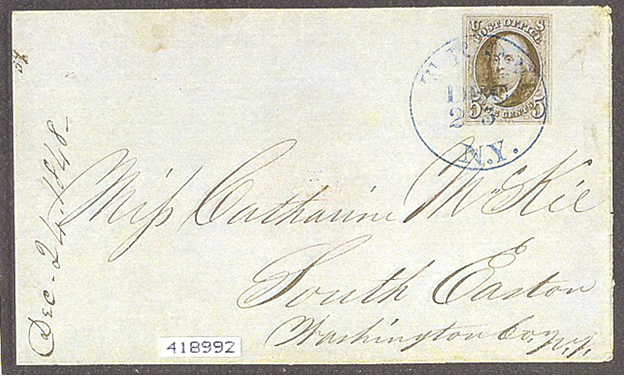 U S
POST OFFICE
DEC
23
N.Y.
5 FIVE CENTS 5
Dec - 24. 1848 -
Miss Catharine McKie
South Easton
Washington Co. N.Y.
418992